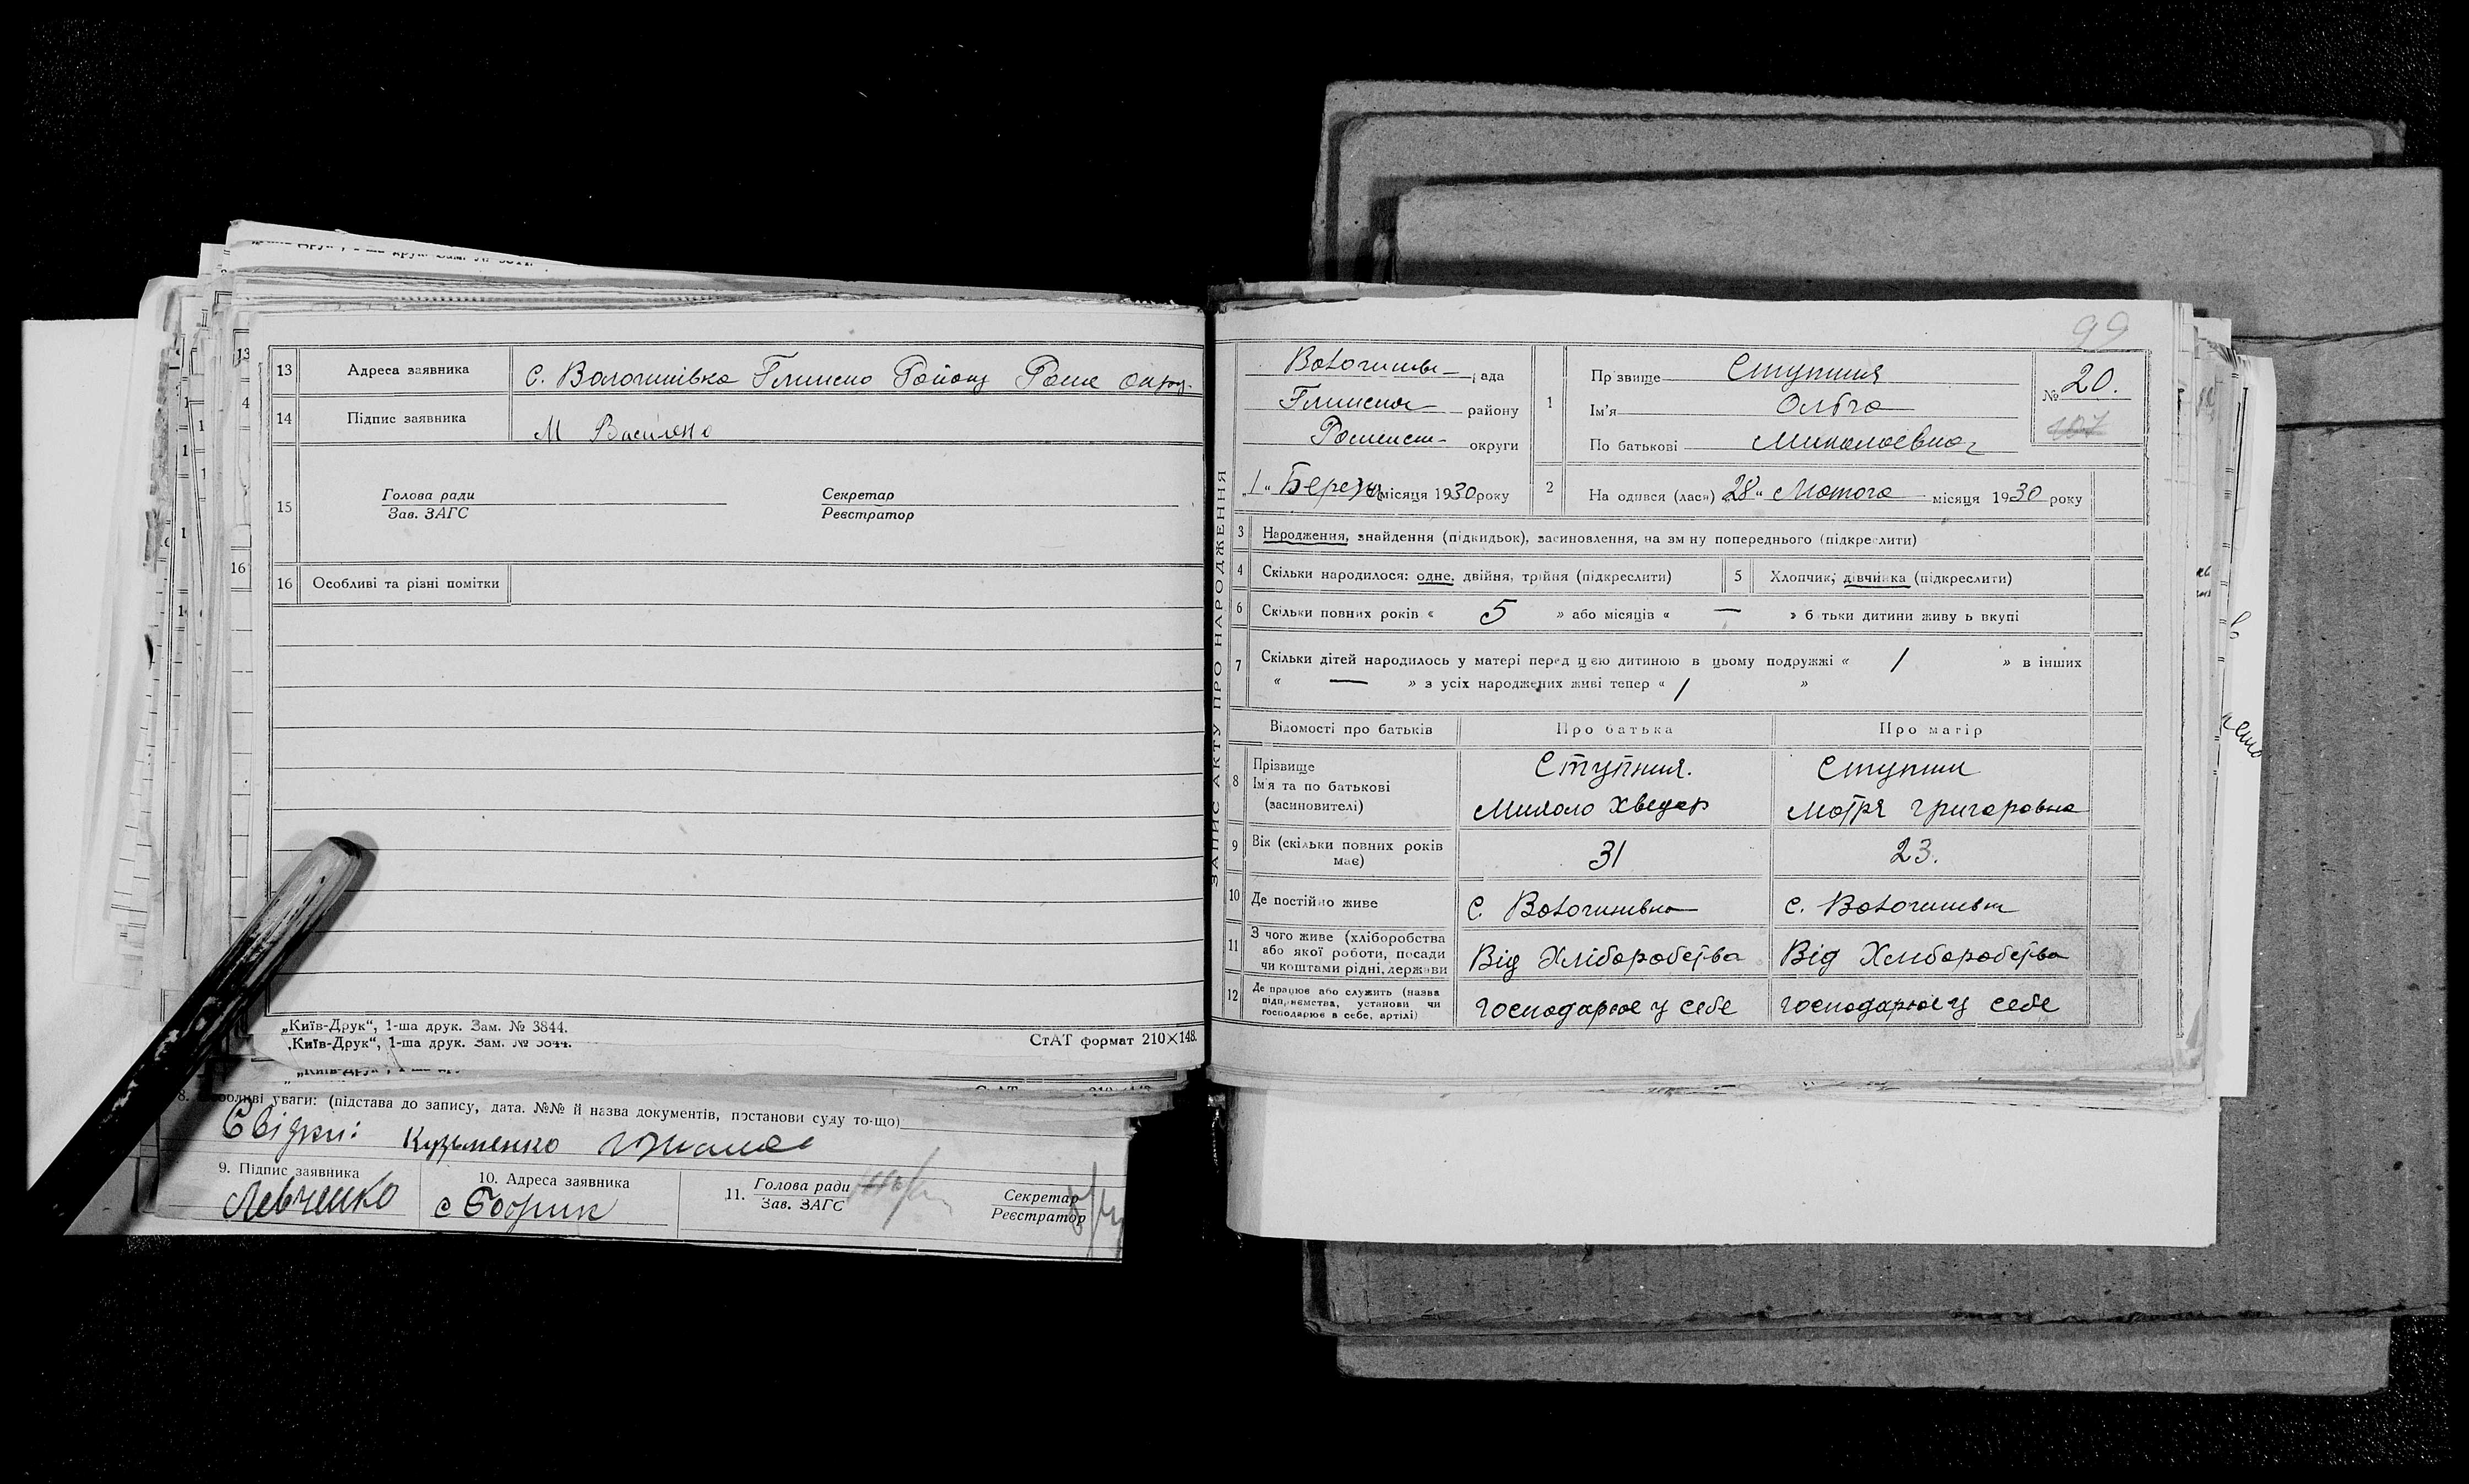 13 Адреса заявника С. Вологшівка Глинсно Району Роме Округ.
14 Підпис заявника М Василено
15 Голова ради Секретар
Зав. ЗАГС Реєстратор
16 Особливі та різні помітки
„Київ-Друк“, 1-ша друк. Зам. № 3844.
„Київ-Друк“, 1-ша друк. Зам. № 3844.
СтАТ формат 210×148.
уваги: (підстава до запису, дата. №№ й назва документів, постанови суду то-що)
Свідки: Кузьменко
9. Підпис заявника 10. Адреса заявника 11. Голова ради Секретар
Зав. ЗАГС Реєстратор
Левченко с Бобрик
99
ЗАПИС АКТУ ПРО НАРОДЖЕННЯ
рада
району
Роменськ- округи
„1“ Березн місяця 1930 року
1 Пр звище Ступния
Ім'я Ольга
По батькові Миколаєвна
№ 20.
2 На одився (лася) 28 “ Лютого місяця 1930 року
3 Народження, знайдення (підкидьок), засиновлення, на зм ну попереднього (підкреслити)
4 Скільки народилося: одне, двійня, трійня (підкреслити) 5 Хлопчик, дівчинка (підкреслити)
6 Скільки повних років « 5 » або місяців « — » б тьки дитини живу ь вкупі
7 Скільки дітей народилось у матері перед цією дитиною в цьому подружжі « 1 » в інших
« — » з усіх народжених живі тепер « 1 »
Відомості про батьків Про батька Про матір
8 Прізвище Ступния. Ступни
Ім'я та по батькові
(засиновителі) Микола Хведор Мотря Григоровна
9 Вік (скільки повних років має) 31 23.
10 Де постійно живе С. Вологшівка С. Вологшівка
11 З чого живе (хліборобства
або якої роботи, посади
чи коштами рідні, держави Від Хліборобства Від Хліборобства
12 Де працює або служить (назва
підприємства, установи чи
господарює в себе, артілі) господарює у себе господарює у себе